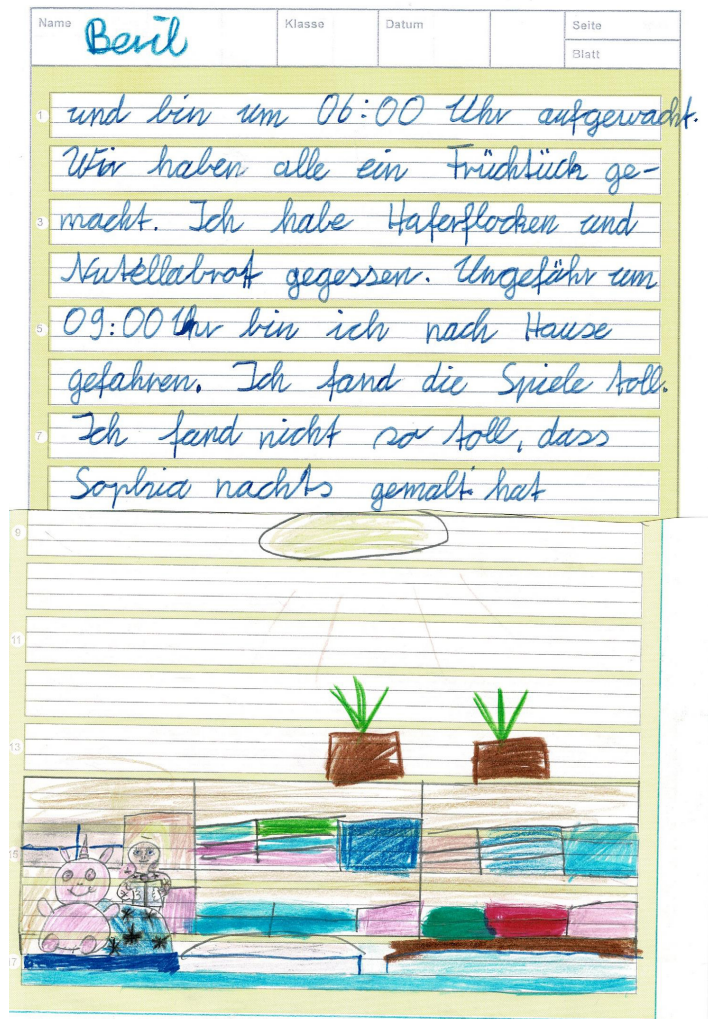 Name Beril Klasse Datum Seite
Blatt
1 und bin um 06:00 Uhr aufgewacht.
Wir haben alle ein Früchtück ge-
3 macht. Ich habe Haferflocken und
Nutellabrot gegessen. Ungefähr um
5 09:00 Uhr bin ich nach Hause
gefahren. Ich fand die Spiele toll.
7 Ich fand nicht so toll, dass
Sophia nachts gemalt hat
9
11
13
15
17